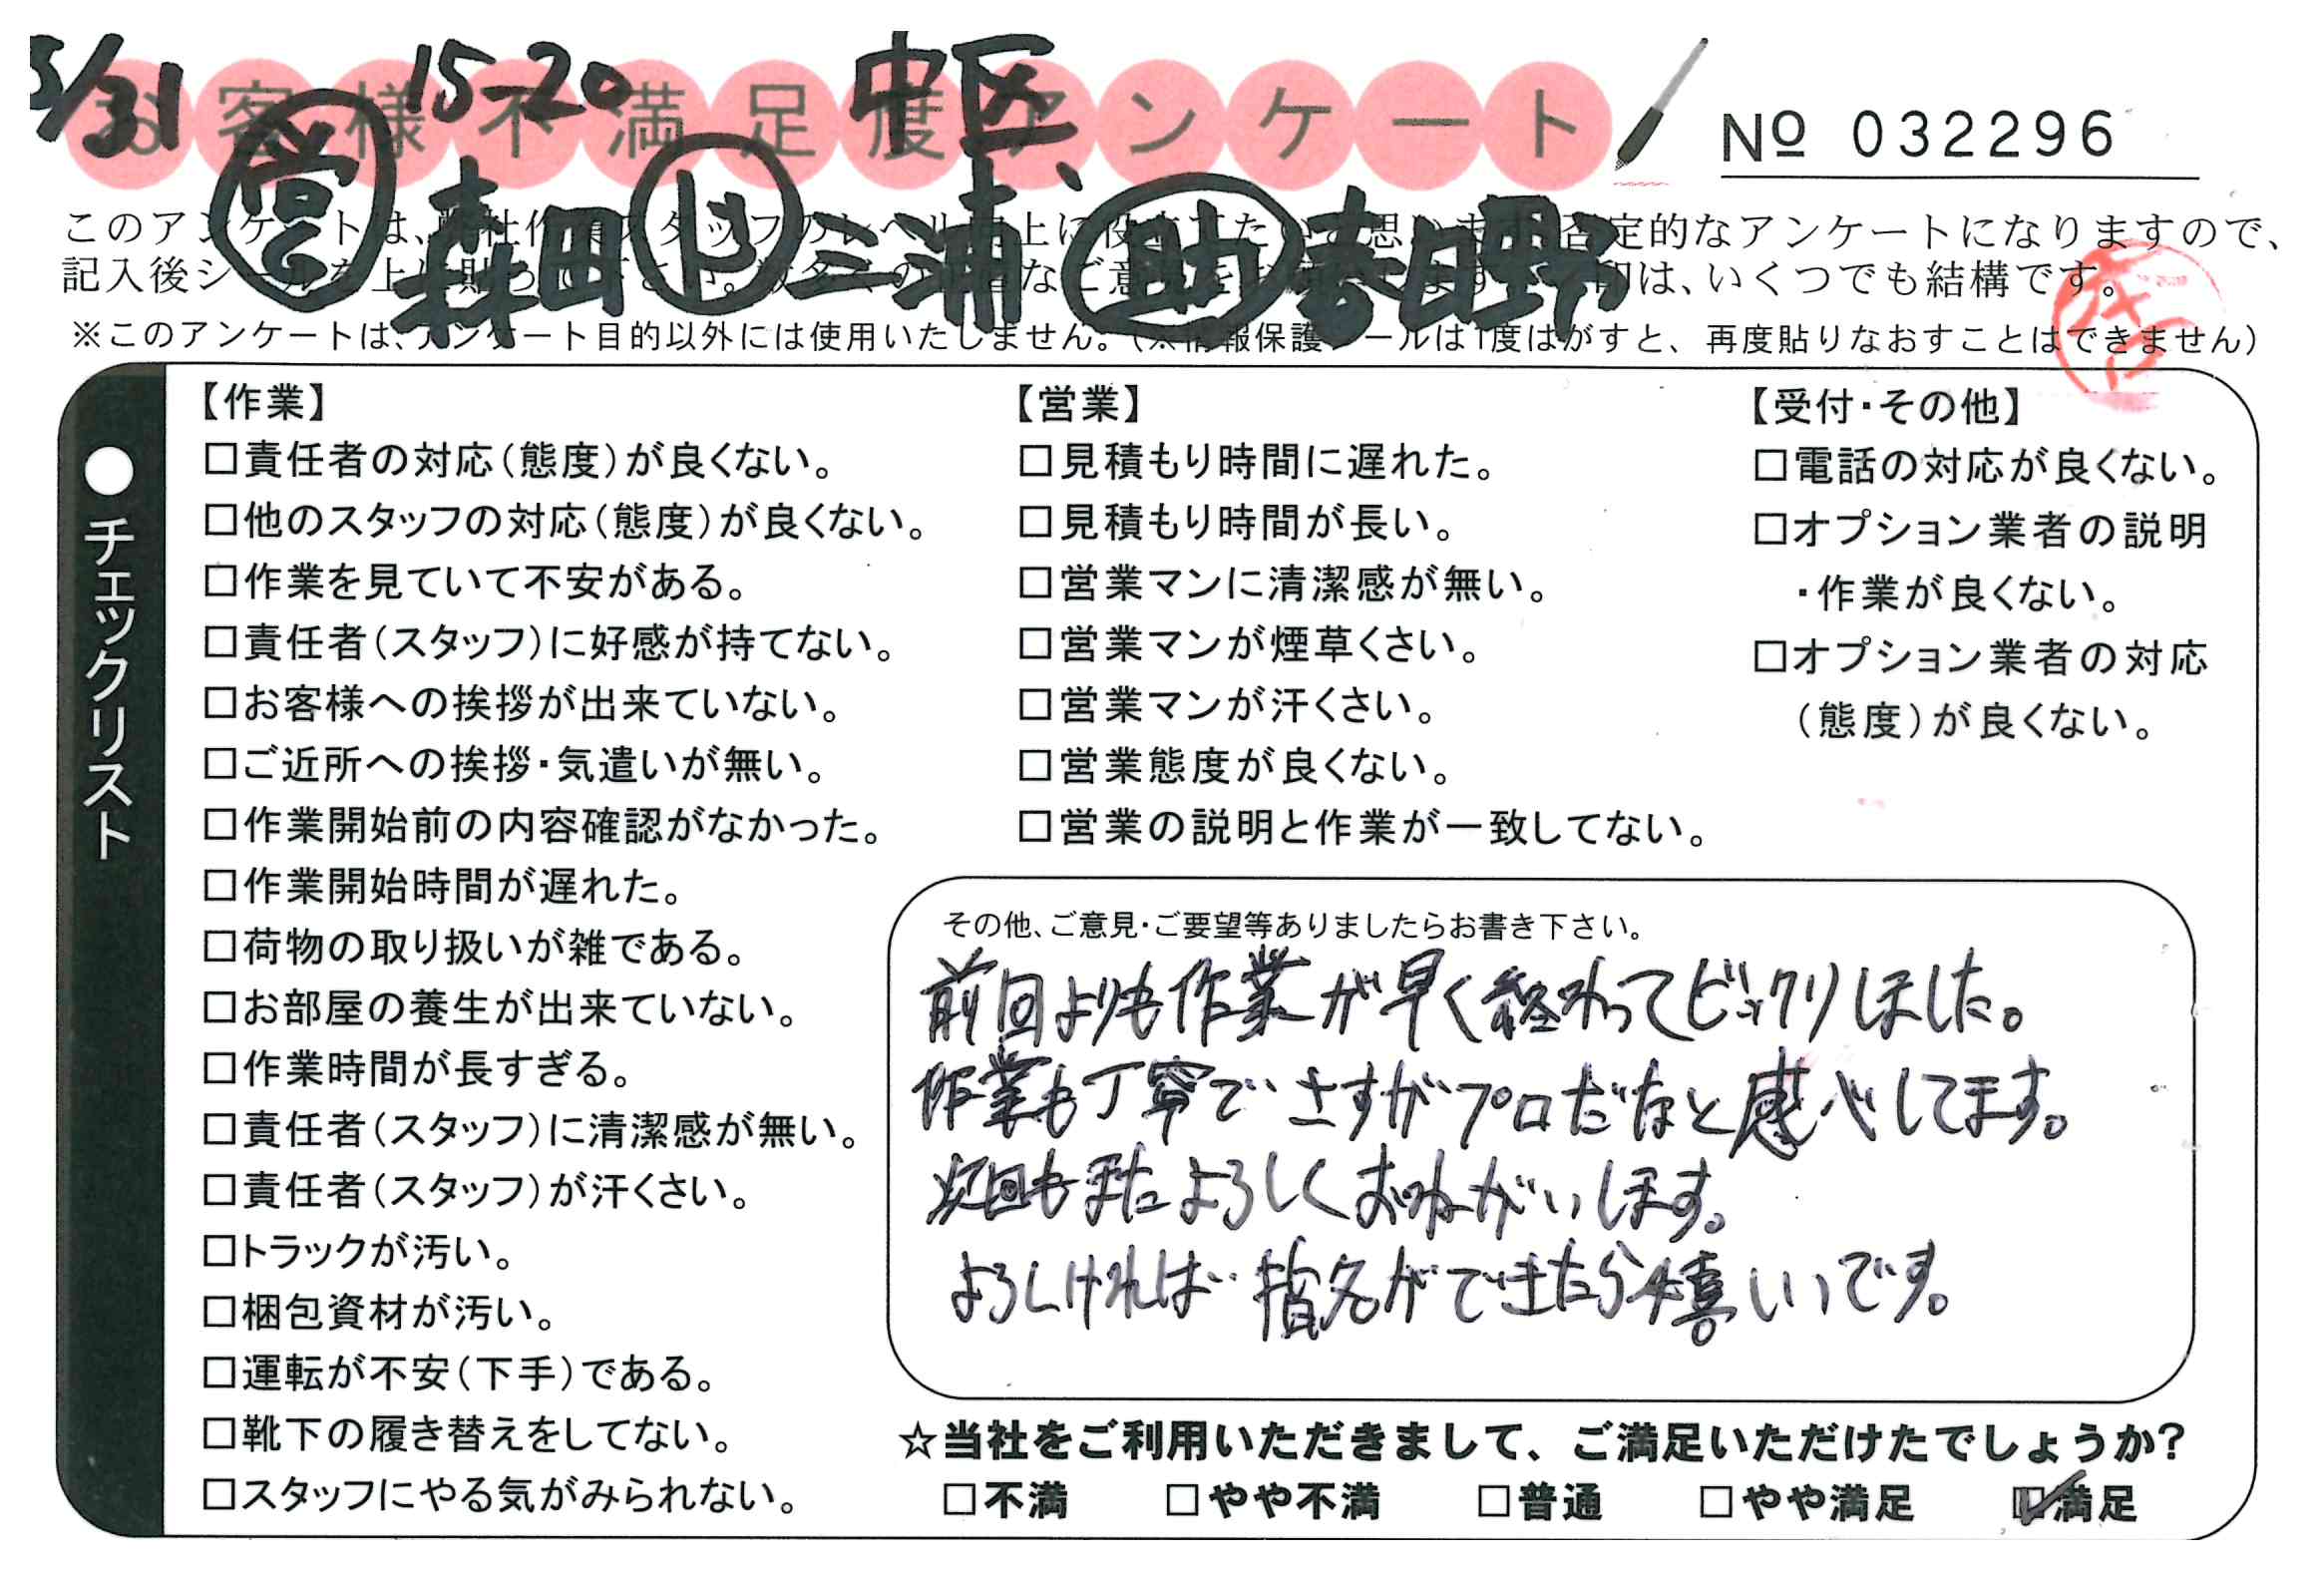 5/31 15-20 中区
お客様不満足度アンケート
№ 032296
営 森田 ド 三浦 助 春日野
このアンケートは、弊社作業スタッフのレベル向上に役立てたいと思います。否定的なアンケートになりますので、
記入後シールを上に貼って下さい。
は、いくつでも結構です。
※このアンケートは、アンケート目的以外には使用いたしません。(※情報保護シールは1度はがすと、再度貼りなおすことはできません)
●チェックリスト
【作業】
□責任者の対応(態度)が良くない。
□他のスタッフの対応(態度)が良くない。
□作業を見ていて不安がある。
□責任者(スタッフ)に好感が持てない。
□お客様への挨拶が出来ていない。
□ご近所への挨拶・気遣いが無い。
□作業開始前の内容確認がなかった。
□作業開始時間が遅れた。
□荷物の取り扱いが雑である。
□お部屋の養生が出来ていない。
□作業時間が長すぎる。
□責任者(スタッフ)に清潔感が無い。
□責任者(スタッフ)が汗くさい。
□トラックが汚い。
□梱包資材が汚い。
□運転が不安(下手)である。
□靴下の履き替えをしてない。
□スタッフにやる気がみられない。
【営業】
□見積もり時間に遅れた。
□見積もり時間が長い。
□営業マンに清潔感が無い。
□営業マンが煙草くさい。
□営業マンが汗くさい。
□営業態度が良くない。
□営業の説明と作業が一致してない。
【受付・その他】
□電話の対応が良くない。
□オプション業者の説明
・作業が良くない。
□オプション業者の対応
(態度)が良くない。
その他、ご意見・ご要望等ありましたらお書き下さい。
前回よりも作業が早く終わってビックリしました。
作業も丁寧でさすがプロだなと感心してます。
次回もまたよろしくおねがいします。
よろしければ指名ができたら嬉しいです。
☆当社をご利用いただきまして、ご満足いただけたでしょうか?
□不満 □やや不満 □普通 □やや満足 ☑満足